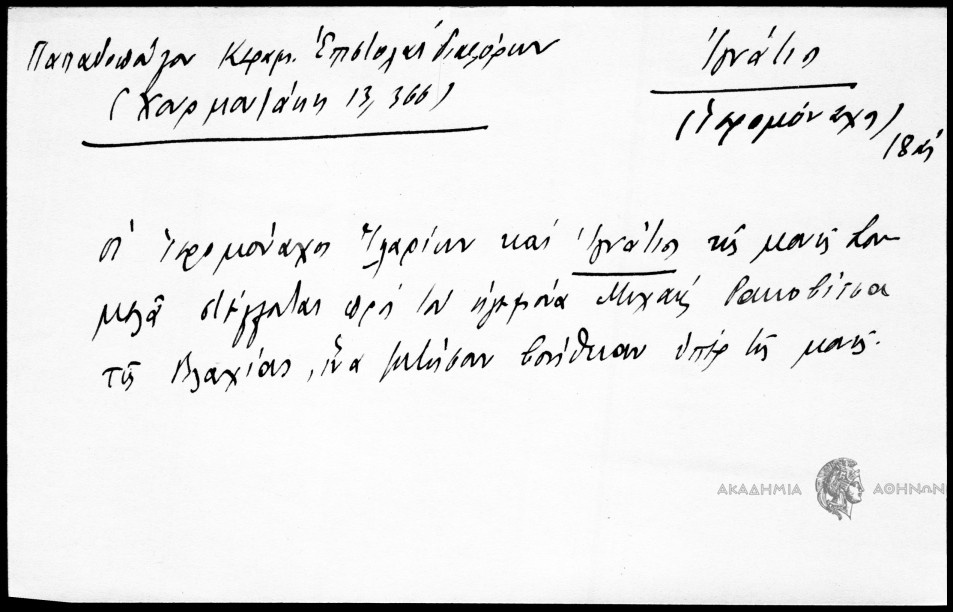 Παπαδοπούλου Κεραμ. Ἐπιστολαί διαφόρων
(Χαρμουζάκη 13, 366)
Ἰγνάτιος
(Ἱερομόναχος)
18 αἰ
οἱ Ἱερομόναχοι Ἱλαρίων καί Ἰγνάτιος τῆς μονῆς Σου-
μελᾶ στέλλονται πρός τόν ἡγεμόνα Μιχαήλ Ρακοβίτσα
τῆς Βλαχίας, ἵνα ζητήσουν βοήθειαν ὑπέρ τῆς μονῆς.
ΑΚΑΔΗΜΙΑ ΑΘΗΝΩΝ